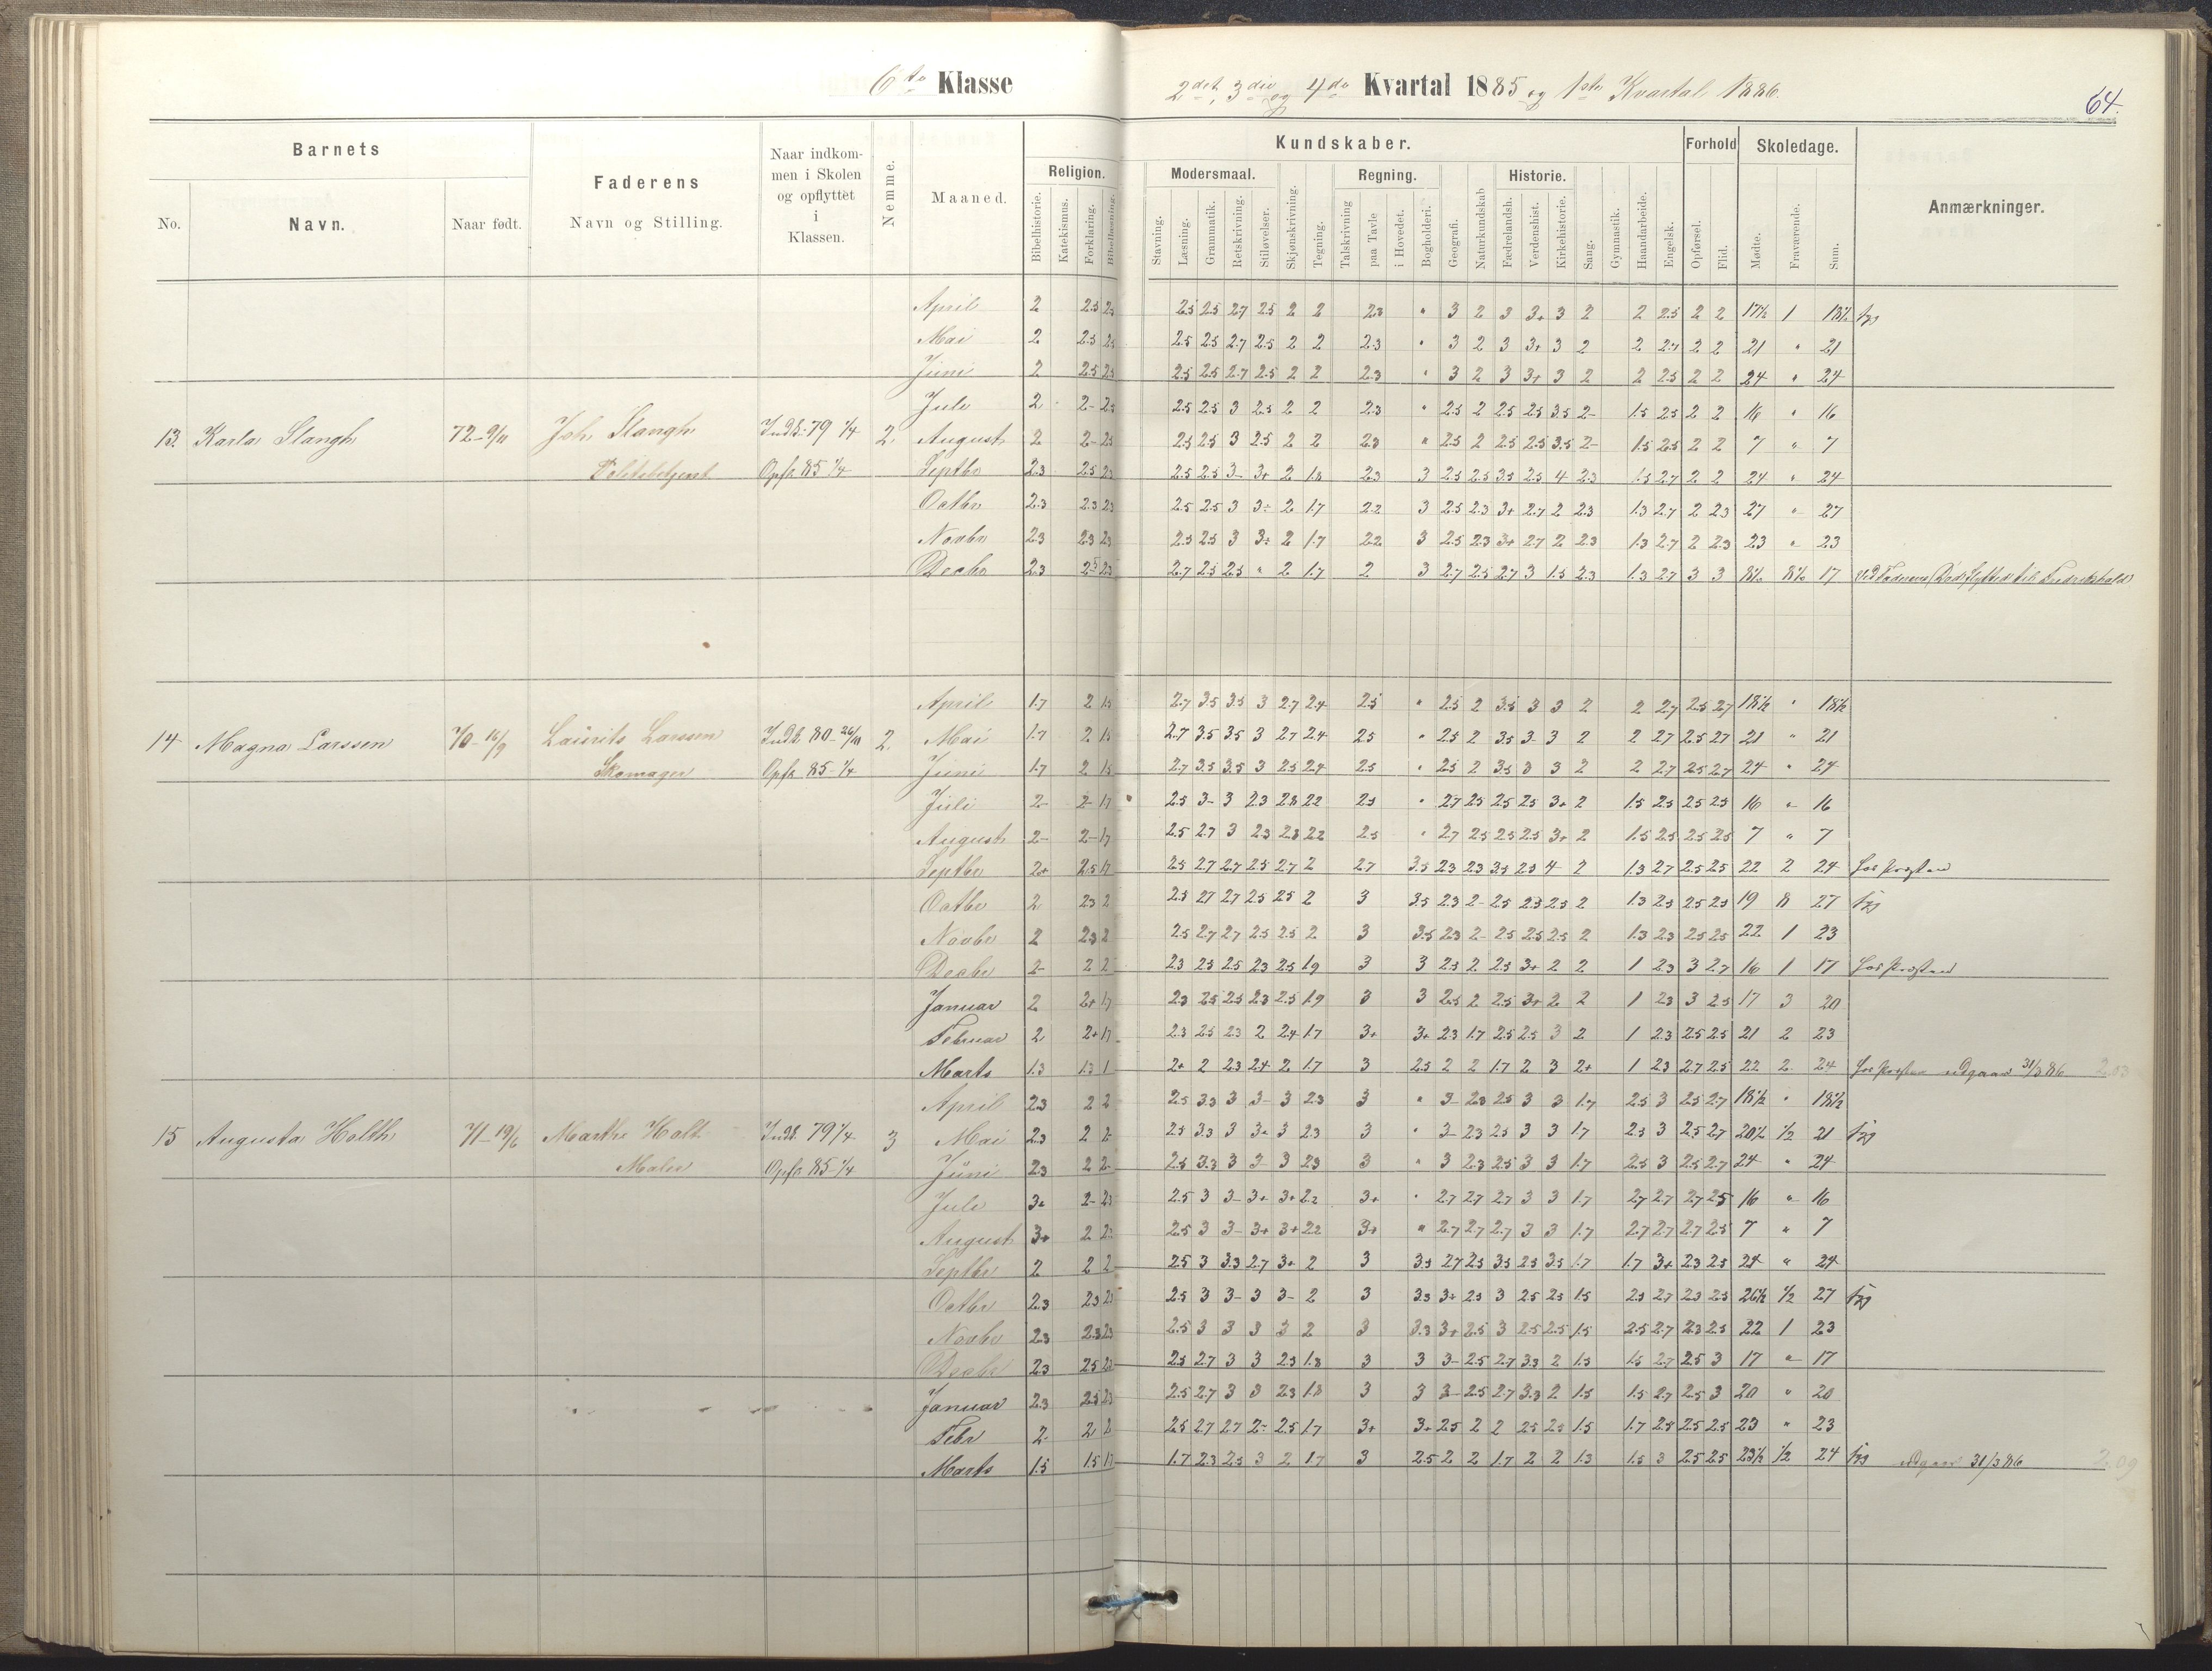 6te Klasse
2det, 3die og 4de Kvartal 1885 og 1ste Kvartal 1886.
64.
Barnets
Faderens
Naar indkom-
men i Skolen
og opflyttet
i
Klassen.
Nemme.
Maaned.
Kundskaber.
Forhold
Skoledage.
Anmærkninger.
No.
Navn.
Naar født.
Navn og Stilling.
Religion.
Modersmaal.
Regning.
Historie.
Bibelhistorie.
Katekismus.
Forklaring.
Bibellæsning.
Stavning.
Læsning.
Grammatik.
Retskrivning.
Stiløvelser.
Skjønskrivning.
Tegning.
Talskrivning
paa Tavle
i Hovedet.
Bogholderi.
Geografi.
Naturkundskab
Fædrelandsh.
Verdenshist.
Kirkehistorie.
Sang.
Gymnastik.
Haandarbeide.
Engelsk.
Opførsel.
Flid.
Mødte.
Fraværende.
Sum.
April 2 2.5 2.5 2.5 2.5 2.7 2.5 2 2 2.3 " 3 2 3 3+ 3 2 2 2.5 2 2 17½ 1 18½
Mai 2 2.5 2.5 2.5 2.5 2.7 2.5 2 2 2.3 " 3 2 3 3+ 3 2 2 2.7 2 2 21 " 21
Juni 2 2.5 2.5 2.5 2.5 2.7 2.5 2 2 2.3 " 3 2 3 3+ 3 2 2 2.5 2 2 24 " 24
Juli 2 2- 2.5 2.5 2.5 3 2.5 2 2 2.3 " 2.5 2 2.5 2.5 3.5 2- 1.5 2.5 2 2 16 " 16
13. Karla Slangh 72-9/11 Joh. Slangh Indk. 79 1/4 2. August 2 2- 2.5 2.5 2.5 3 2.5 2 2 2.3 " 2.5 2 2.5 2.5 3.5 2- 1.5 2.5 2 2 7 " 7
Politibetjent Opfl. 85 1/4 Septbr 2.3 2.5 2.3 2.5 2.5 3- 3+ 2 1.8 2.3 3 2.5 2.5 3.5 2.5 4 2.3 1.5 2.7 2 2 24 " 24
Octbr 2.3 2.3 2.3 2.5 2.5 3 3- 2 1.7 2.2 3 2.5 2.3 3+ 2.7 2 2.3 1.3 2.7 2 2.3 27 " 27
Novbr 2.3 2.3 2.3 2.5 2.5 3 3- 2 1.7 2.2 3 2.5 2.3 3+ 2.7 2 2.3 1.3 2.7 2 2.3 23 " 23
Decbr 2.3 2.5 2.3 2.7 2.5 2.5 " 2 1.7 2 3 2.7 2.5 2.7 3 1.5 2.3 1.3 2.7 3 3 8½ 8½ 17 Ved Faderens Død flyttet til Fredrikshald
April 1.7 2 1.5 2.7 3.5 3.5 3 2.7 2.4 2.5 " 2.5 2 3.5 3 3 2 2 2.7 2.5 2.7 18½ " 18½
14 Magna Larssen 70-16/9 Laurits Larssen Indk. 80-26/10 2. Mai 1.7 2 1.5 2.7 3.5 3.5 3 2.7 2.4 2.5 " 2.5 2 3.5 3 3 2 2 2.7 2.5 2.7 21 " 21
Skomager Opfl. 85-1/4 Juni 1.7 2 1.5 2.7 3.5 3.5 3 2.5 2.4 2.5 " 2.5 2 3.5 3 3 2 2 2.7 2.5 2.7 24 " 24
Juli 2- 2- 1.7 2.5 3- 3 2.3 2.8 2.2 2.5 " 2.7 2.5 2.5 2.5 3+ 2 1.5 2.5 2.5 2.5 16 " 16
August 2- 2- 1.7 2.5 2.7 3 2.3 2.8 2.2 2.5 " 2.7 2.5 2.5 2.5 3+ 2 1.5 2.5 2.5 2.5 7 " 7
Septbr 2+ 2.5 1.7 2.5 2.7 2.7 2.5 2.7 2 2.7 3.5 2.3 2.3 3.5 2.3 4 2 1.3 2.7 2.5 2.5 22 2 24 hos Præsten
Octbr 2 2.3 2 2.5 2.7 2.7 2.5 2.5 2 3 3.5 2.3 2- 2.5 2.3 2.5 2 1.3 2.3 2.5 2.5 19 8 27
Novbr 2 2.3 2 2.5 2.7 2.7 2.5 2.5 2 3 3.5 2.3 2- 2.5 2.5 2.5 2 1.3 2.3 2.5 2.5 22 1 23
Decbr 2- 2 2 2.3 2.5 2.5 2.3 2.5 1.9 3 3 2.5 2 2.5 3+ 2 2 1 2.3 3 2.7 16 1 17 hos Præsten
Januar 2 2+ 1.7 2.3 2.5 2.5 2.3 2.5 1.9 3 3 2.5 2 2.5 3+ 2 2 1 2.3 3 2.5 17 3 20
Februar 2 2+ 1.7 2.3 2.5 2.3 2 2.4 1.7 3+ 3+ 2.3 1.7 2.5 2.5 3 2 1 2.3 2.5 2.5 21 2 23
Marts 1.3 1.3 1 2+ 2 2.3 2.4 2 1.7 3 2.5 2 2 1.7 2 3 2+ 1 2.3 2.7 2.5 22 2 24 hos Præsten udgaar 31/3 86
April 2.3 2 2 2.5 3.3 3 3- 3 2.3 3 " 3- 2.3 2.5 3 3 1.7 2.5 3 2.5 2.7 18½ " 18½
15 Augusta Holth 71-19/6 Marthe Holt Indk. 79 1/4 3 Mai 2.3 2 2- 2.5 3.3 3 3- 3 2.3 3 " 3- 2.3 2.5 3 3 1.7 2.5 3 2.5 2.7 20½ ½ 21
Maler Opfl. 85 1/4 Juni 2.3 2 2- 2.5 3.3 3 3- 3 2.3 3 " 3 2.3 2.5 3 3 1.7 2.5 3 2.5 2.7 24 " 24
Juli 3+ 2- 2.3 2.5 3 3- 3+ 3+ 2.2 3+ " 2.7 2.7 2.7 3 3 1.7 2.7 2.7 2.7 2.5 16 " 16
August 3+ 2 2.- 2.5 3 3- 3+ 3+ 2.2 3+ " 2.7 2.7 2.7 3 3 1.7 2.7 2.7 2.7 2.5 7 " 7
Septbr 2 2 2 2.5 3 3.3 2.7 3+ 2 3 3.5 2.7 2.5 3.5 2.3 3.5 1.7 1.7 3+ 2.3 2.5 24 " 24
Octbr 2.3 2.3 2.3 2.5 3 3- 3 3- 2 3 3.3 3+ 2.5 3 2.5 2.5 1.5 2.5 2.7 2.3 2.5 26½ ½ 27
Novbr 2.3 2.3 2.3 2.5 3 3 3 3 2 3 3.3 3+ 2.5 3 2.5 2.5 1.5 2.5 2.7 2.3 2.5 22 1 23
Decbr 2.3 2.5 2.3 2.5 2.7 3 3 2.3 1.8 3 3 3- 2.5 2.7 3.3 2 1.5 1.5 2.7 2.5 3 17 " 17
Januar 2.3 2.5 2.3 2.5 2.7 3 3 2.3 1.8 3 3 3- 2.5 2.7 3.3 2 1.5 1.5 2.7 2.5 3 20 " 20
Febr 2- 2 2 2.5 2.7 2.7 2- 2.5 1.7 3+ 3+ 2.5 2 2 2.5 2.5 1.5 1.7 2.8 2.5 2.5 23 " 23
Marts 1.5 1.5 1.7 1.7 2.3 2.5 3 2 1.7 3 2.5 2 2 1.7 2 2 1.3 1.5 3 2.5 2.5 23½ ½ 24 udgaar 31/3 86 2.09